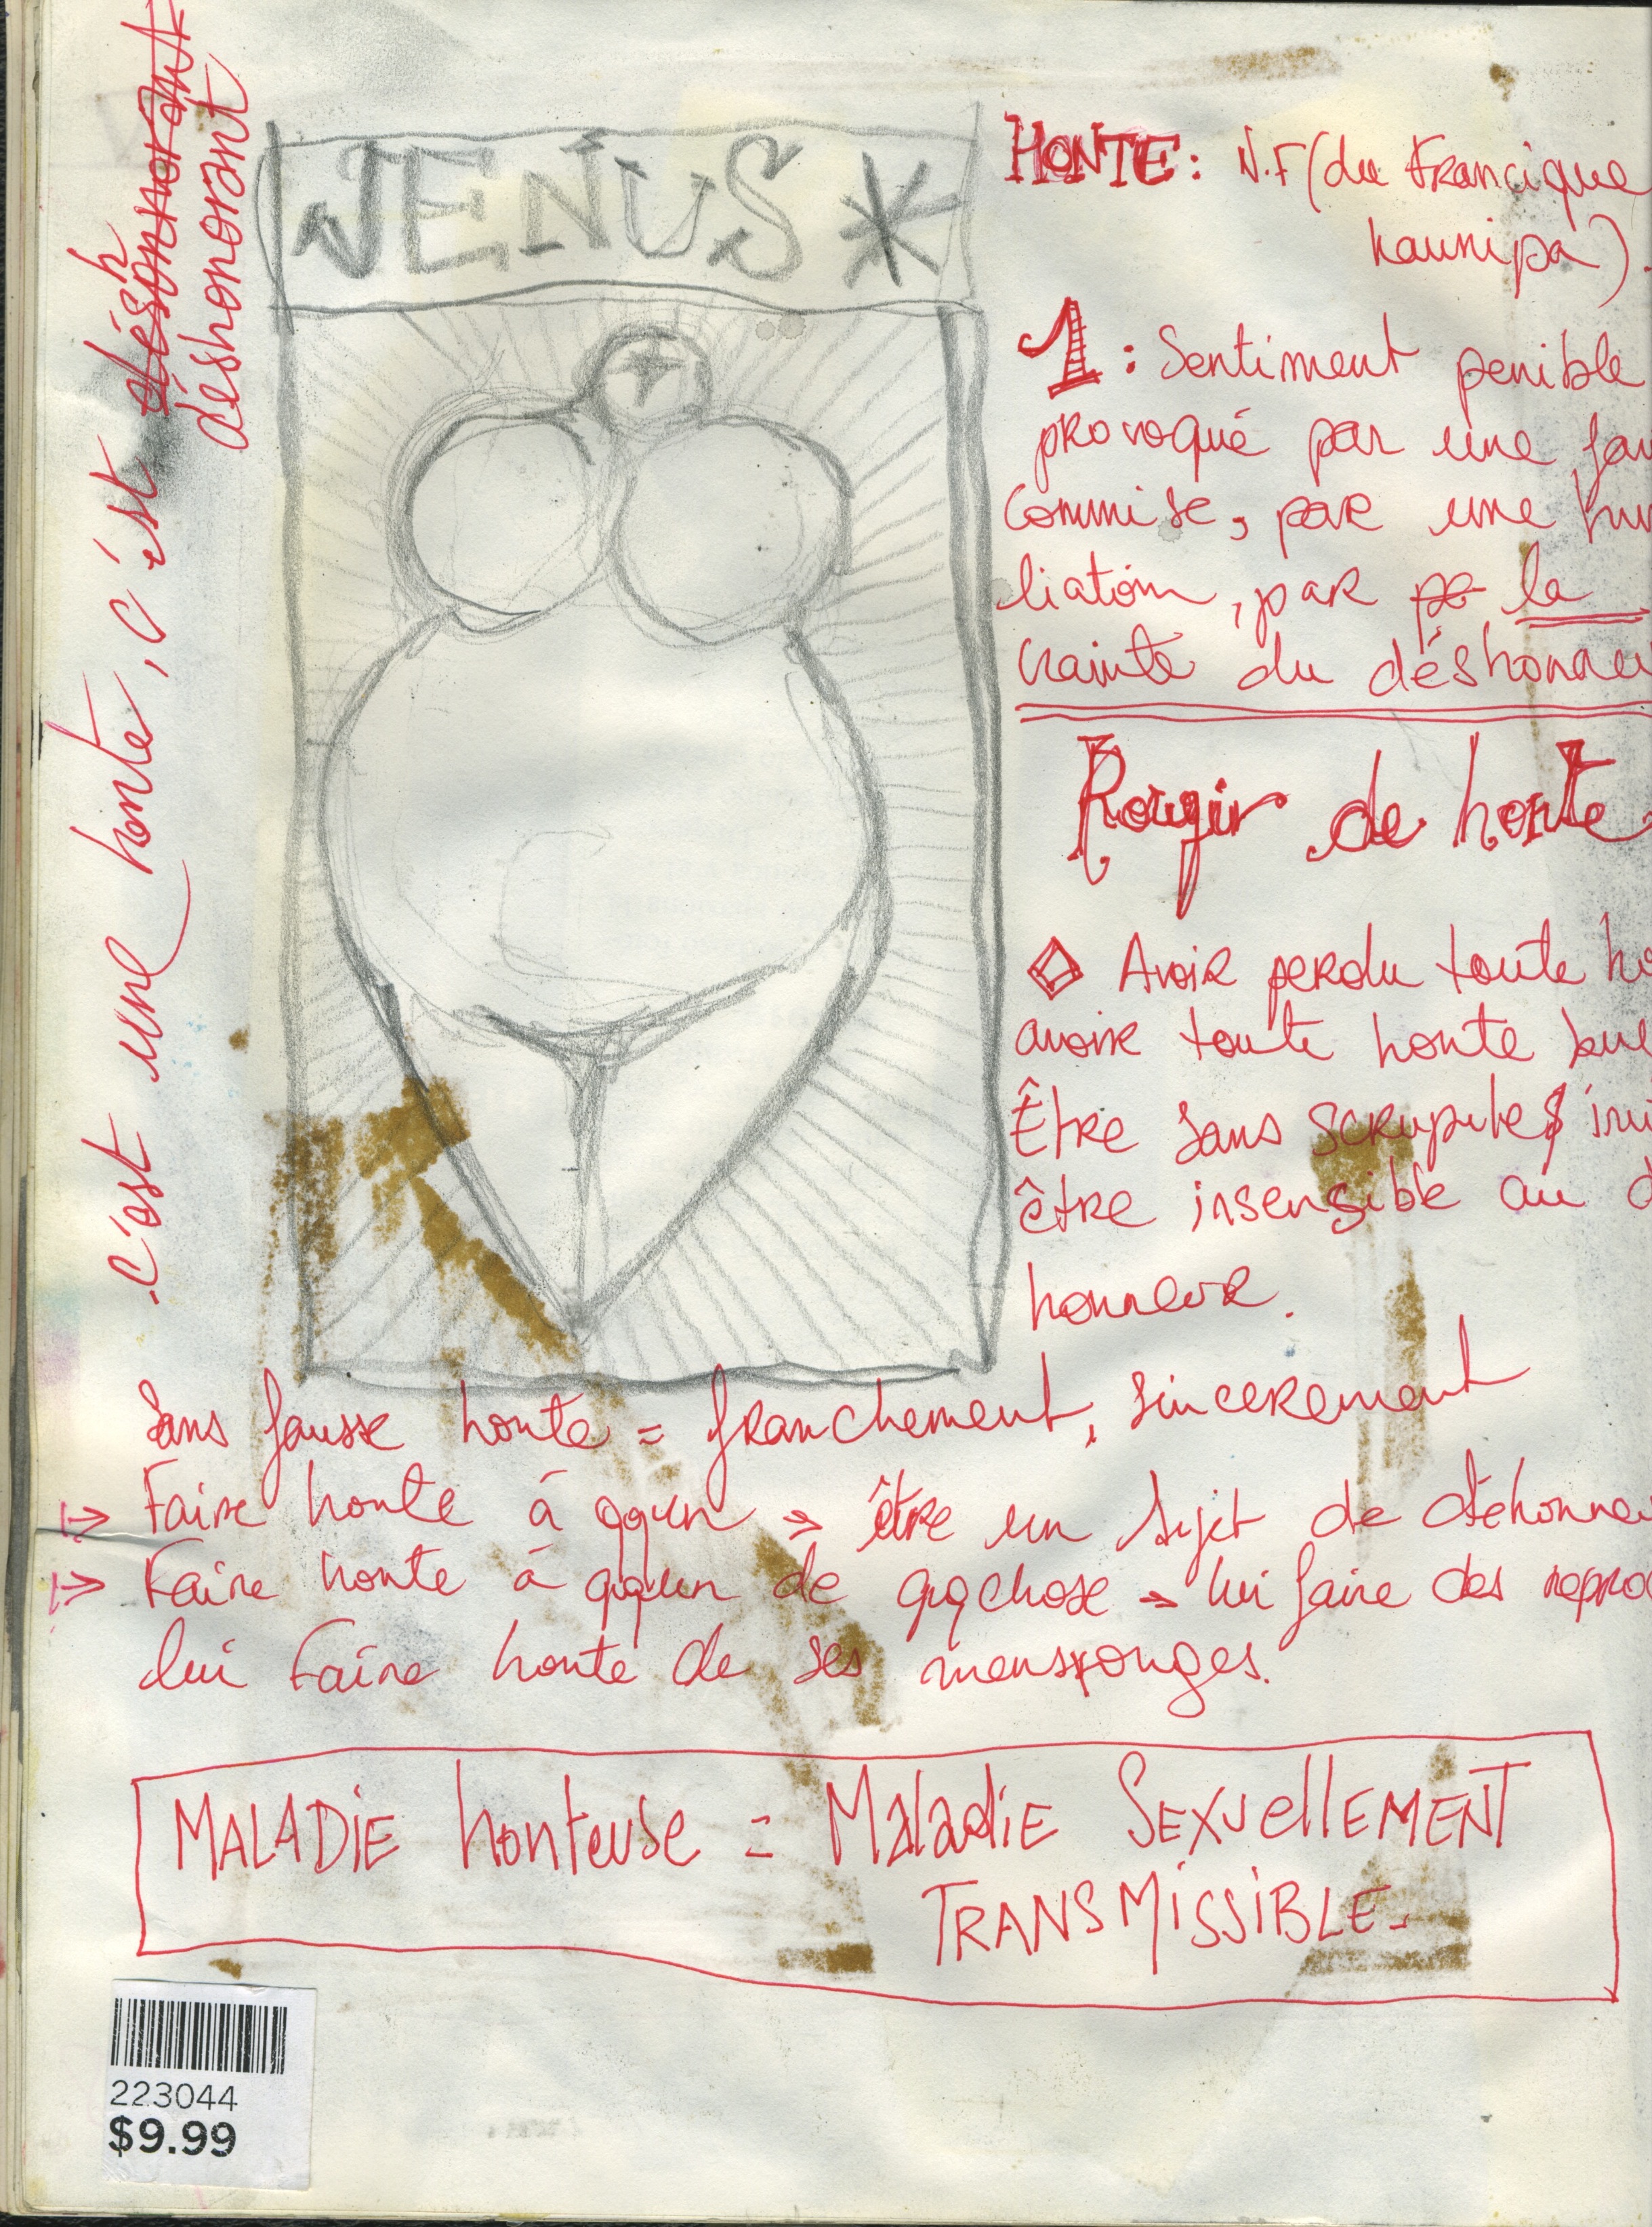 c'est une honte, c'est désonorant
h
déshonorant
VENUS *
HONTE: N.F (du Francique
haunipa).
1: Sentiment penible
provoqué par une fau
commise, par une hu
liation, par pe la
crainte du déshonneu
Rougir de honte
◇ Avoir perdu toute ho
avoir toute honte bue
Être sans scrupules
être insensible au d
honneur.
Sans fausse honte = franchement, sincerement
→ Faire honte à qqun → être un sujet de déhonneu
→ Faire honte à qqun de qqchose → lui faire des repro
lui faire honte de ses mensonges.
MALADIE honteuse = Maladie SEXUELLEMENT
TRANSMISSIBLE.
223044
$9.99